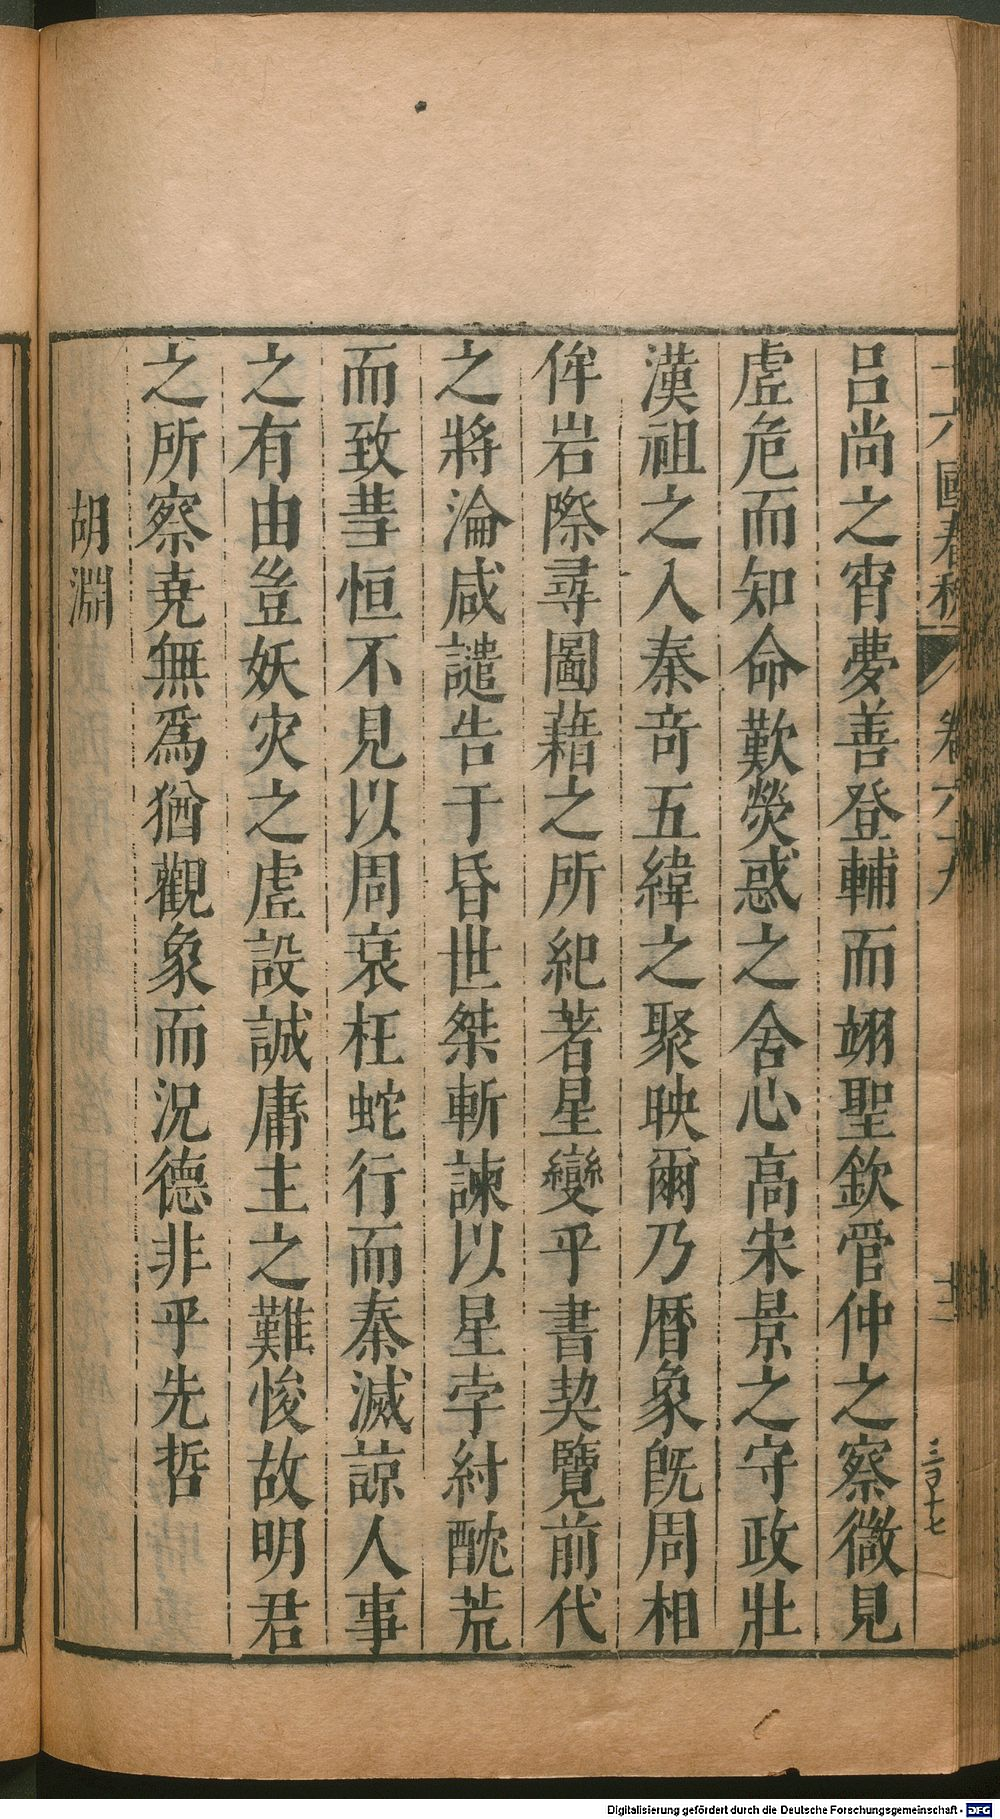 十六國春秋 卷六十九 十二
呂尚之宵夢善登輔而翊聖欽管仲之察微見
虛危而知命歎熒惑之舍心高宋景之守政壯
漢祖之入秦竒五緯之聚映爾乃曆象既周相
佯岩際尋圖藉之所紀著星變乎書契覽前代
之將淪咸譴告于昏世桀斬諫以星孛紂酖荒
而致彗恒不見以周衰枉蛇行而秦滅諒人事
之有由豈妖灾之虛設誠庸主之難悛故明君
之所察堯無爲猶觀象而況德非乎先哲
胡淵
Digitalisierung gefördert durch die Deutsche Forschungsgemeinschaft - DFG